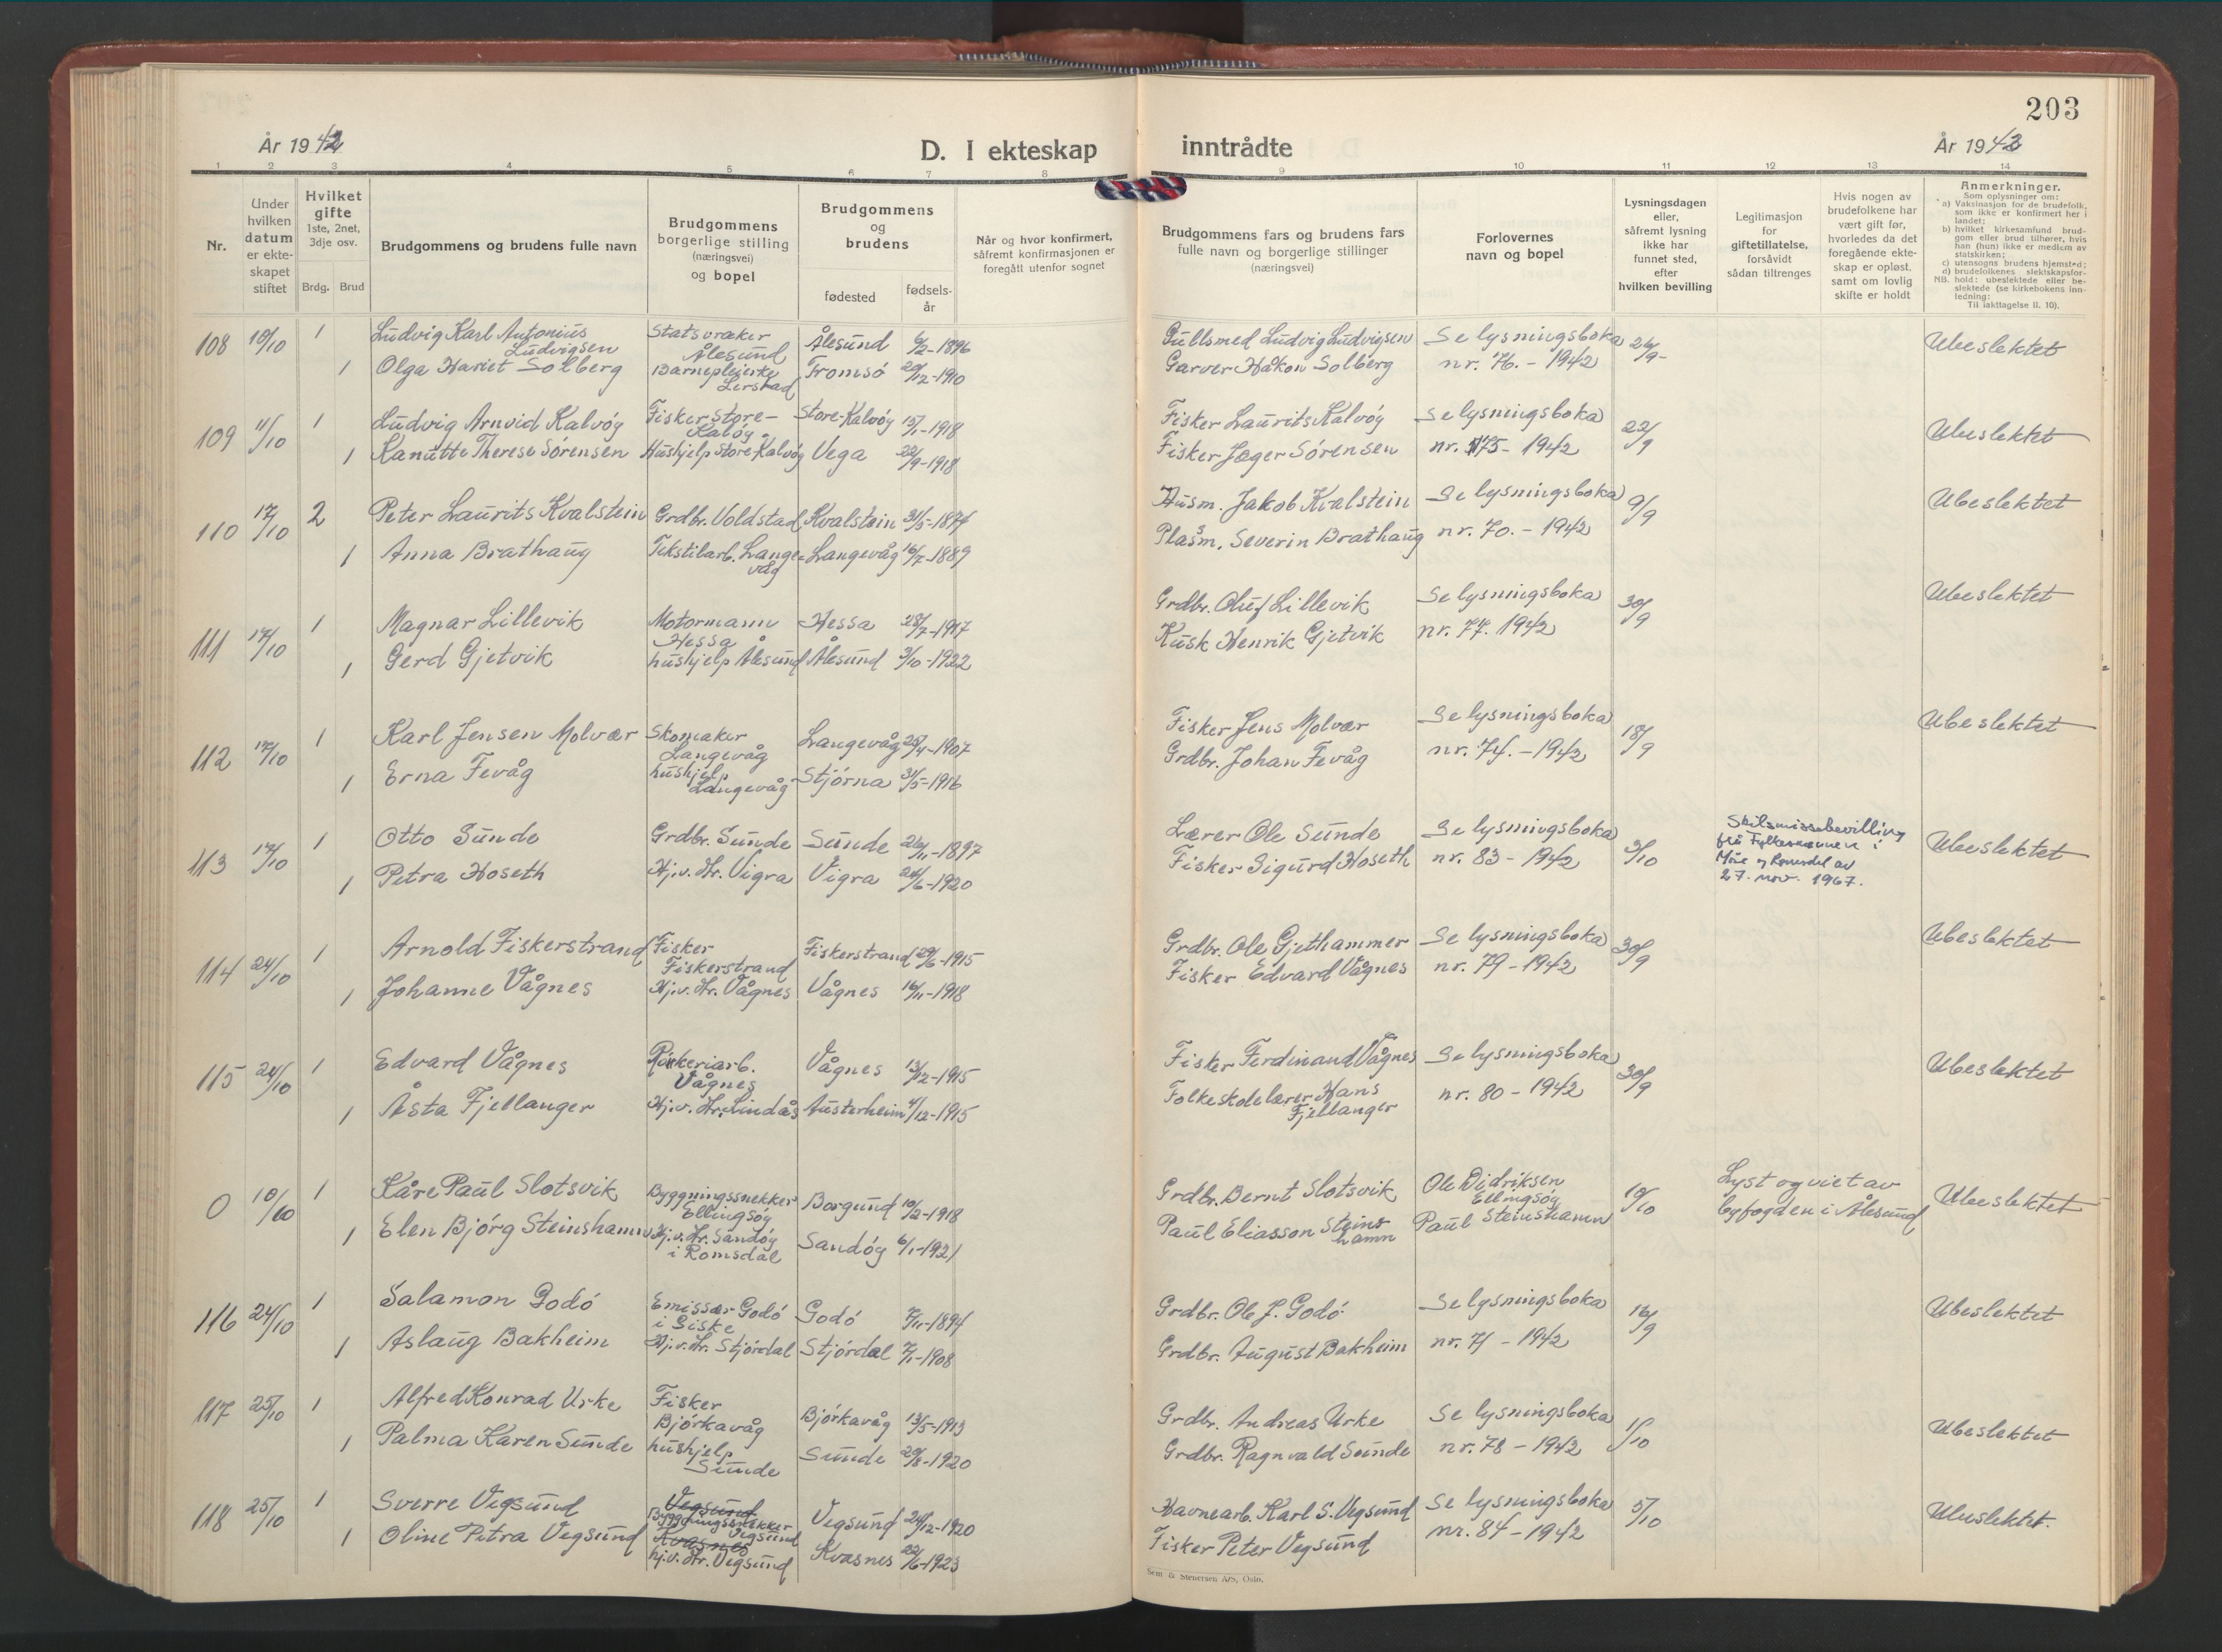 203
År 1942
D. I ekteskap
inntrådte
År 1942
1 2 3 4 5 6 7 8 9 10 11 12 13 14
Nr.
Under
hvilken
datum
er ekte-
skapet
stiftet
Hvilket
gifte
1ste, 2net,
3dje osv.
Brdg. Brud
Brudgommens og brudens fulle navn
Brudgommens
borgerlige stilling
(næringsvei)
og bopel
Brudgommens
og
brudens
fødested
fødsels-
år
Når og hvor konfirmert,
såfremt konfirmasjonen er
foregått utenfor sognet
Brudgommens fars og brudens fars
fulle navn og borgerlige stillinger
(næringsvei)
Forlovernes
navn og bopel
Lysningsdagen
eller,
såfremt lysning
ikke har
funnet sted,
efter
hvilken bevilling
Legitimasjon
for
giftetillatelse,
forsåvidt
sådan tiltrenges
Hvis nogen av
brudefolkene har
vært gift før,
hvorledes da det
foregående ekte-
skap er opløst,
samt om lovlig
skifte er holdt
Anmerkninger.
Som oplysninger om:
a) Vaksinasjon for de brudefolk,
som ikke er konfirmert her i
landet;
b) hvilket kirkesamfund brud-
gom eller brud tilhører, hvis
han (hun) ikke er medlem av
statskirken;
c) utensogns brudens hjemsted;
d) brudefolkenes slektskapsfor-
NB. hold: ubeslektede eller be-
slektede (se kirkebokens inn-
ledning:
Til iakttagelse II. 10).
108 10/10 1 Ludvig Karl Antonius
Ludvigsen
Statsvraker
Ålesund
Ålesund 6/2-1896 Gullsmed Ludvig Ludvigsen Se lysningsboka 26/9- Ubeslektet
1 Olga Hariet Solberg Barnepleierke
Lerstad
Tromsó 20/12-1910 Garver Håkon Solberg nr. 76. - 1942
109 11/10 1 Ludvig Arnvid Kalvóy Fisker Store-
Kalóy
Store-Kalvóy 15/1-1918 Fisker Laurits Kalvóy Se lysningsboka 22/9 Ubeslektet
1 Kanutte Therese Sórensen Hushjelp Store-Kalvóy Vega 22/9-1918 Fisker Jæger Sórensen nr. 75- 1942
110 17/10 2 Peter Laurits Kvalstein Grdbr. Voldstad Kvalstein 31/5-1874 Husm. Jakob Kvalstein Se lysningsboka 9/9 Ubeslektet
1 Anna Brathaug Tekstilarb. Lange-
våg
Langevåg 16/7-1889 Plasm. Severin Brathaug nr. 70. - 1942
111 17/10 1 Magnar Lillevik Motormann
Hessa
Hessa 28/7-1917 Grdbr. Oluf Lillevik Se lysningsboka 30/9 Ubeslektet
1 Gerd Gjetvik hushjelp Ålesund Ålesund 3/10-1922 Kusk Henrik Gjetvik nr. 77. 1942
112 17/10 1 Karl Jensen Molvær Skomaker
Langevåg
Langevåg 25/4-1907 Fisker Jens Molvær Se lysningsboka 18/9 Ubeslektet
1 Erna Fevåg hushjelp
Langevåg
Stjórna 31/5-1916 Grdbr. Johan Fevåg nr. 74. - 1942
113 17/10 1 Otto Sunde Grdbr. Sunde Sunde 26/11-1897 Lærer Ole Sunde Se lysningsboka 3/10 Skilsmissebevilling
frå Fylkesmannen i
Møre og Romsdal av
27. nov. 1967.
Ubeslektet
1 Petra Hoseth Hj.v. Hr. Vigra Vigra 24/6-1920 Fisker Sigurd Hoseth nr. 83 - 1942
114 24/10 1 Arnold Fiskerstrand Fisker
Fiskerstrand
Fiskerstrand 29/6-1915 Grdbr. Ole Gjethammer Se lysningsboka 30/9 Ubeslektet
1 Johanne Vågnes Hj.v. Hr. Vågnes Vågnes 16/11-1918 Fisker Edvard Vågnes nr. 79 - 1942
115 24/10 1 Edvard Vågnes Rökeriarb.
Vågnes
Vågnes 13/12-1915 Fisker Ferdinand Vågnes Se lysningsboka 30/9 Ubeslektet
1 Åsta Fjellanger Hj.v. Hr. Lindås Austerheim 4/12-1915 Folkeskolelærer Hans
Fjellanger
nr. 80 - 1942
0 10/10 1 Kåre Paul Slotsvik Byggningssnekker
Ellingsóy
Borgund 10/2-1918 Grdbr. Bernt Slotsvik Ole Didriksen
Ellingsóy
10/10 Lyst og viet av
byfogden i Ålesund
Ubeslektet
1 Elen Bjórg Steinshamn Hj.v. Hr. Sandóy
i Romsdal
Sandóy 6/1-1921 Paul Eliasson Steins
hamn
Paul Steinshamn
116 24/10 1 Salamon Godó Emissær Godó
i Giske
Godó 7/11-1894 Grdbr. Ole J. Godó Se lysningsboka 16/9 Ubeslektet
1 Aslaug Bakheim Hj.v. Hr. Stjórdal Stjórdal 7/1-1908 Grdbr. August Bakheim nr. 71 - 1942
117 25/10 1 Alfred Konrad Urke Fisker
Bjórkavåg
Bjórkavåg 13/5-1913 Grdbr. Andreas Urke Se lysningsboka 1/10 Ubeslektet
1 Palma Karen Sunde hushjelp
Sunde
Sunde 20/8-1920 Grdbr. Ragnvald Sunde nr. 78 - 1942
118 25/10 1 Sverre Vegsund Vegsund
Byggningssnekker
Vegsund
Vegsund 24/12-1920 Havnearb. Karl S. Vegsund Se lysningsboka 5/10 Ubeslektet.
1 Oline Petra Vegsund Kvasnes
hj.v. Hr. Vegsund
Kvasnes 22/6-1923 Fisker Peter Vegsund nr. 84 - 1942
Sem & Stenersen A/S, Oslo.